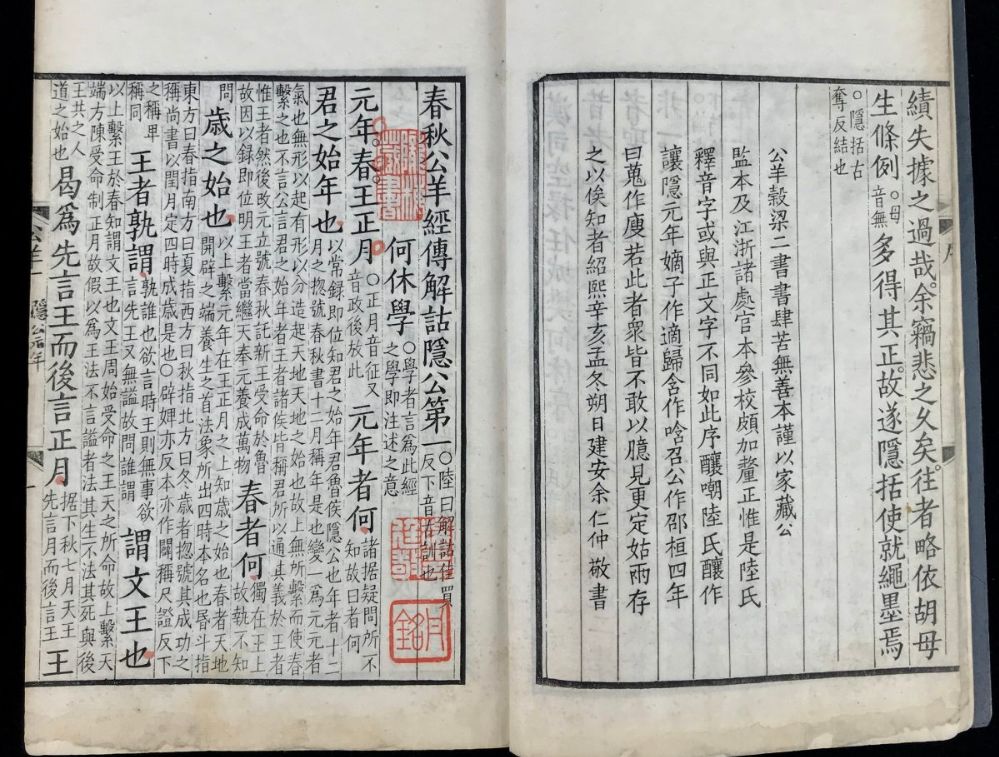 績失據之過哉余竊悲之久矣往者略依胡母
生條例○母音無多得其正故遂隱括使就繩墨焉
○隱括古
奪反結也
公羊穀梁二書書肆苦無善本謹以家藏公
監本及江浙諸處官本參校頗加釐正惟是陸氏
釋音字或與正文字不同如此序釀嘲陸氏釀作
讓隱元年嫡子作適歸含作唅召公作邵桓四年
曰蒐作廋若此者衆皆不敢以臆見更定姑兩存
之以俟知者紹熙辛亥孟冬朔日建安余仁仲敬書
春秋公羊經傳解詁隱公第一○陸曰解詁佳買反下音古訓也
何休學○學者言爲此經之學即注述之意
元年春王正月○正月音征又音政後放此元年者何諸据疑問所不知故曰者何
君之始年也以常録即位知君之始年君魯侯隱公也年者十二月之揔號春秋書十二月稱年是也變一爲元元者
氣也無形以起有形以分造起天地天地之始也故上無所繫而使春
繫之也不言公言君之始年者王者諸侯皆稱君所以通其義於王者
惟王者然後改元立號春秋託新王受命於魯
故因以録即位明王者當繼天奉元養成萬物春者何獨在王上故執不知
問歳之始也以上繫元年在王正月之上知歳之始也春者天地開辟之端養生之首法象所出四時本名也昏斗指
東方曰春指南方曰夏指西方曰秋指北方曰冬歳者揔號其成功之
稱尚書以閏月定四時成歳是也○辟婢亦反本亦作闢稱尺證反下
之稱甲稱同王者孰謂孰誰也欲言時王則無事欲言先王又無謚故問誰謂謂文王也
以上繫王於春知謂文王也文王周始受命之王天之所命故上繫天
端方陳受命制正月故假以爲王法不言謚者法其生不法其死與後
王共之人道之始也曷爲先言王而後言正月据下秋七月天王先言月而後言王王
公羊一
隱公元年
一
序